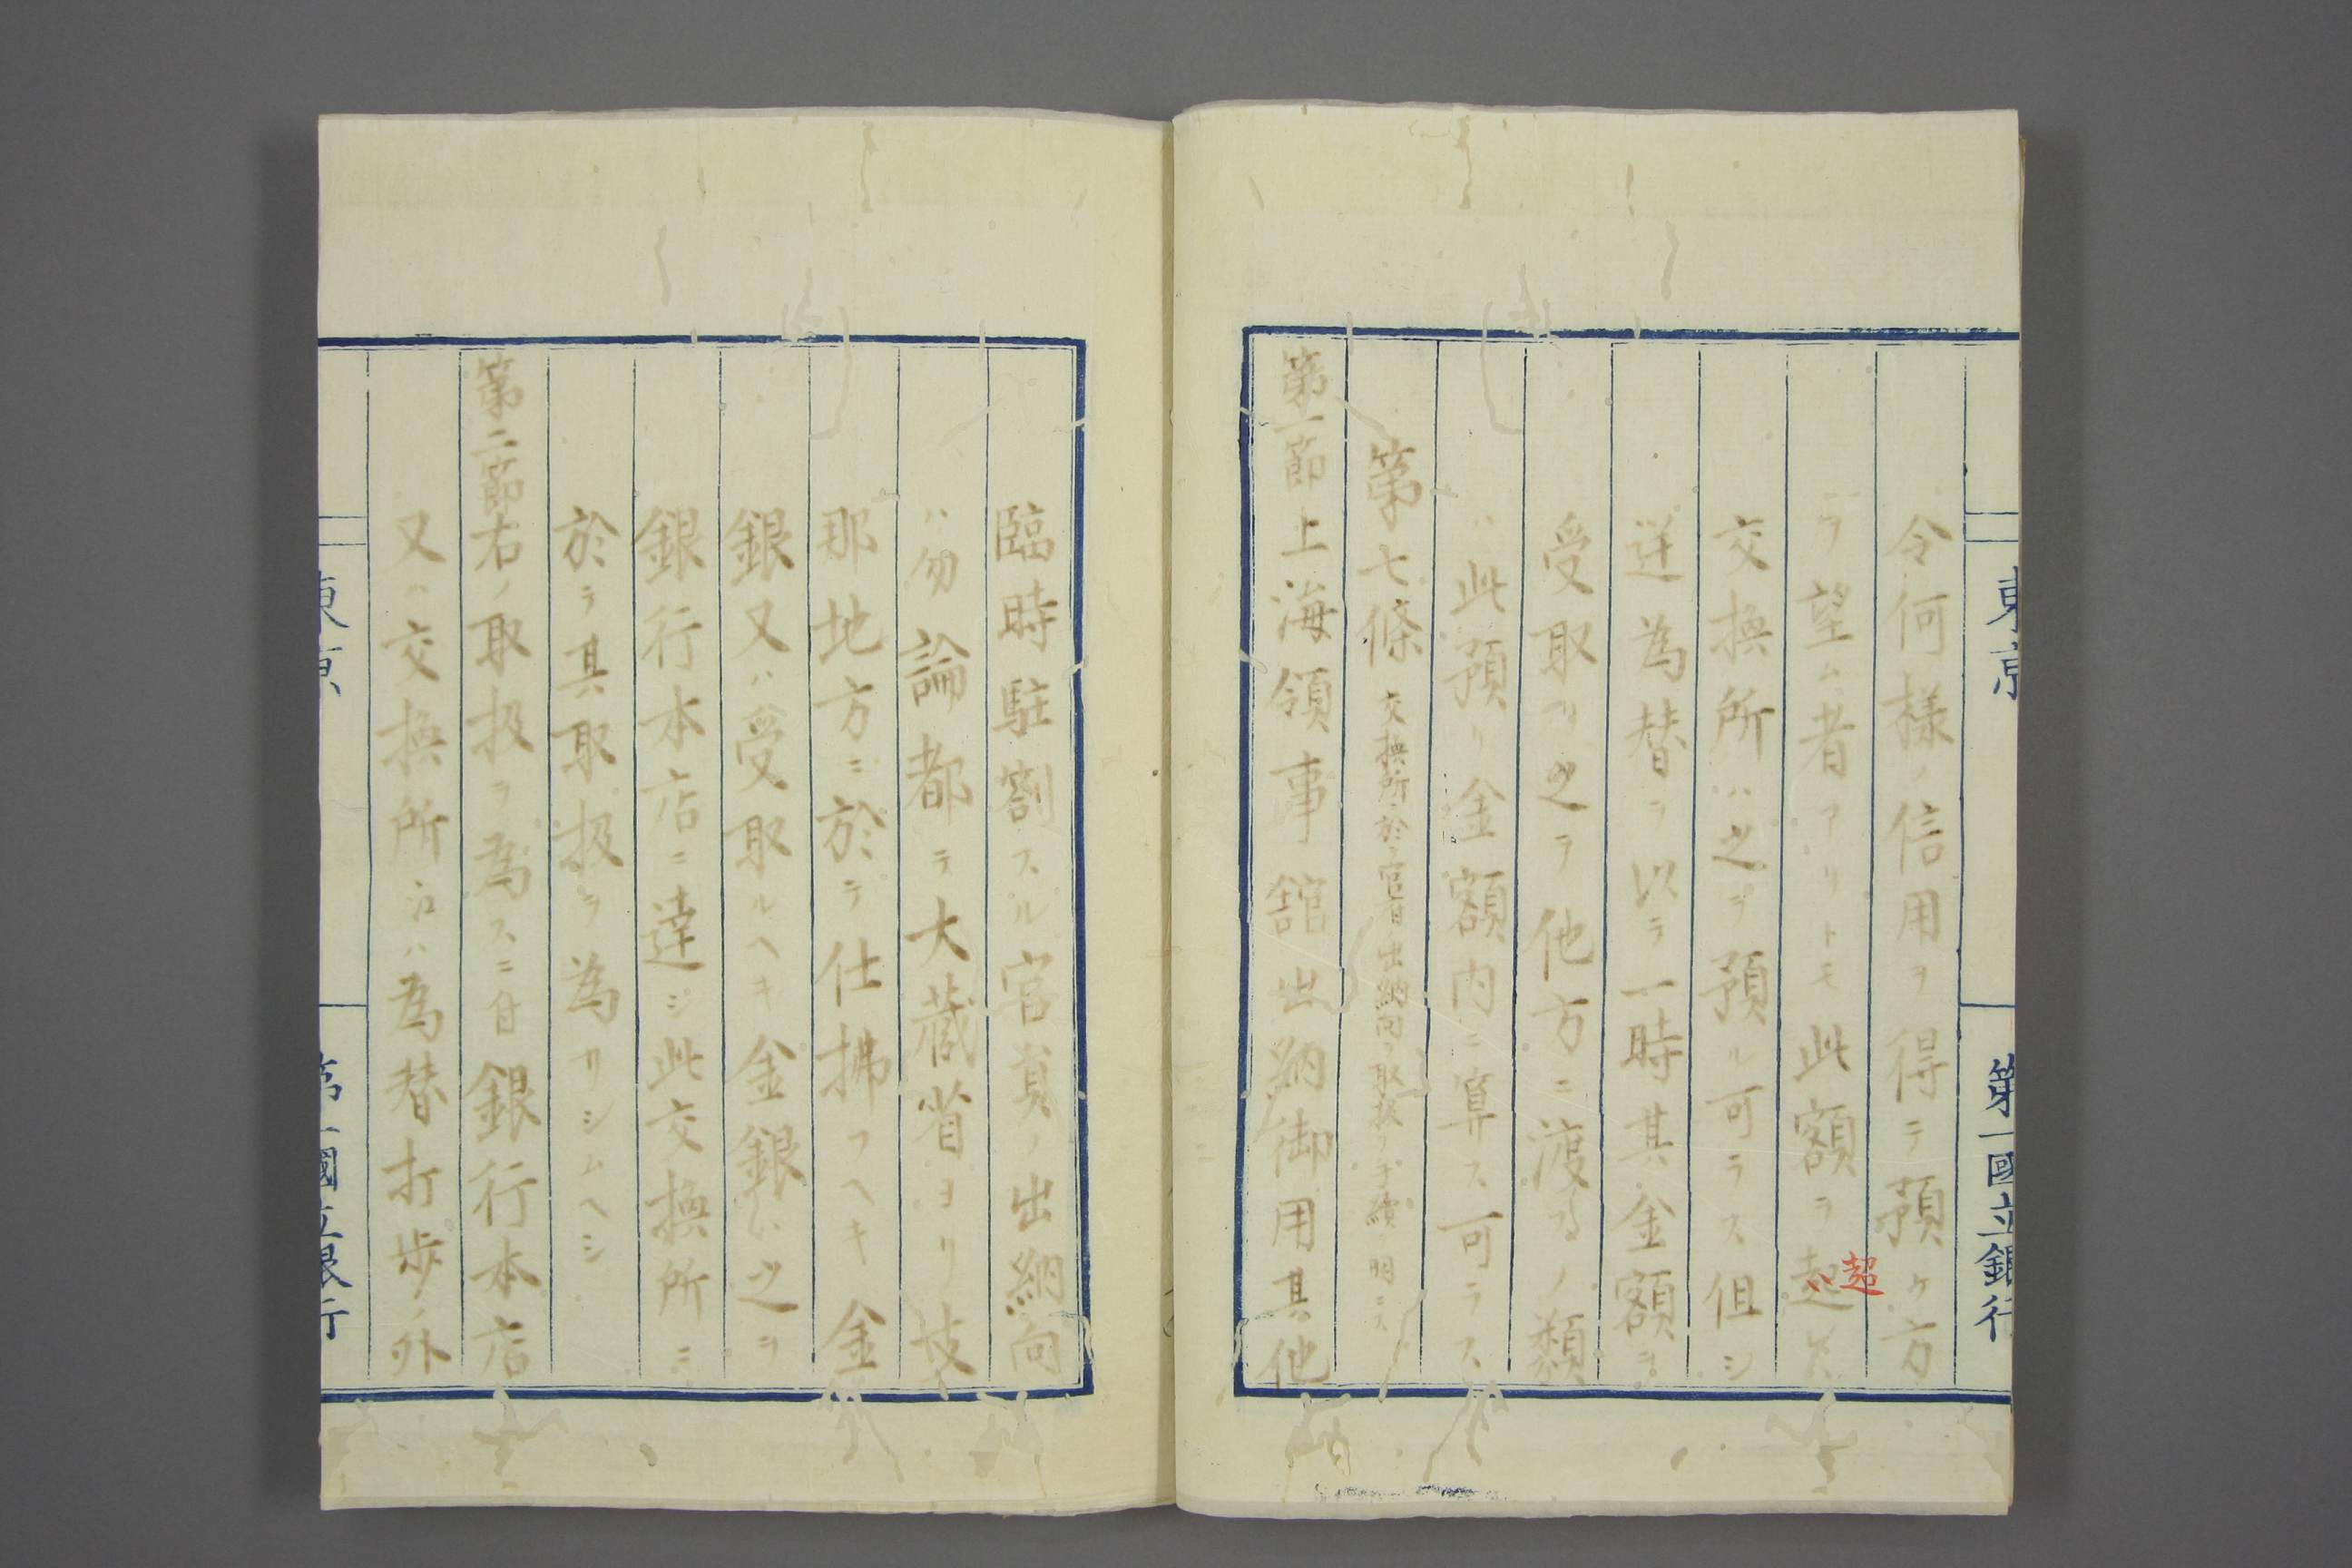 東京
第一國立銀行
令何樣ノ信用ヲ得テ預ケ方
ヲ望ム者アリトモ此額ヲ起
超
交換所ハ之ヲ預ル可ラス但シ
逆為替ヲ以テ一時其金額ヲ
受取リ之ヲ他方ニ渡スノ類
ハ此預リ金額内ニ算ス可ラス
第七條 交換所ニ於テ官省出納向ヲ取扱フ手續ヲ明ニス
第一節上海領事舘出納御用其他
臨時駐劄スル官員ノ出納向
ハ勿論都テ大蔵省ヨリ支
那地方ニ於テ仕拂フヘキ金
銀又ハ受取ルヘキ金銀ハ之ヲ
銀行本店ニ達シ此交換所ニ
於テ其取扱ヲ為サシムヘシ
第二節右ノ取扱ヲ為スニ付銀行本店
又ハ交換所ニハ為替打歩ノ外
東京
第一國立銀行